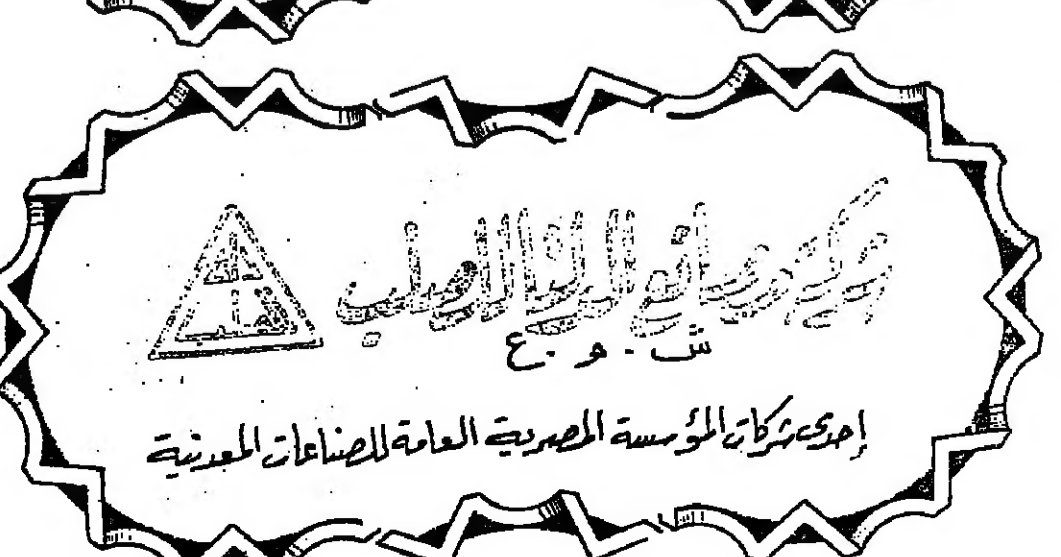 شركة مصانع الدلتا للصلب
ش . م . ع
إحدى شركات المؤسسة المصرية العامة للصناعات المعدنية